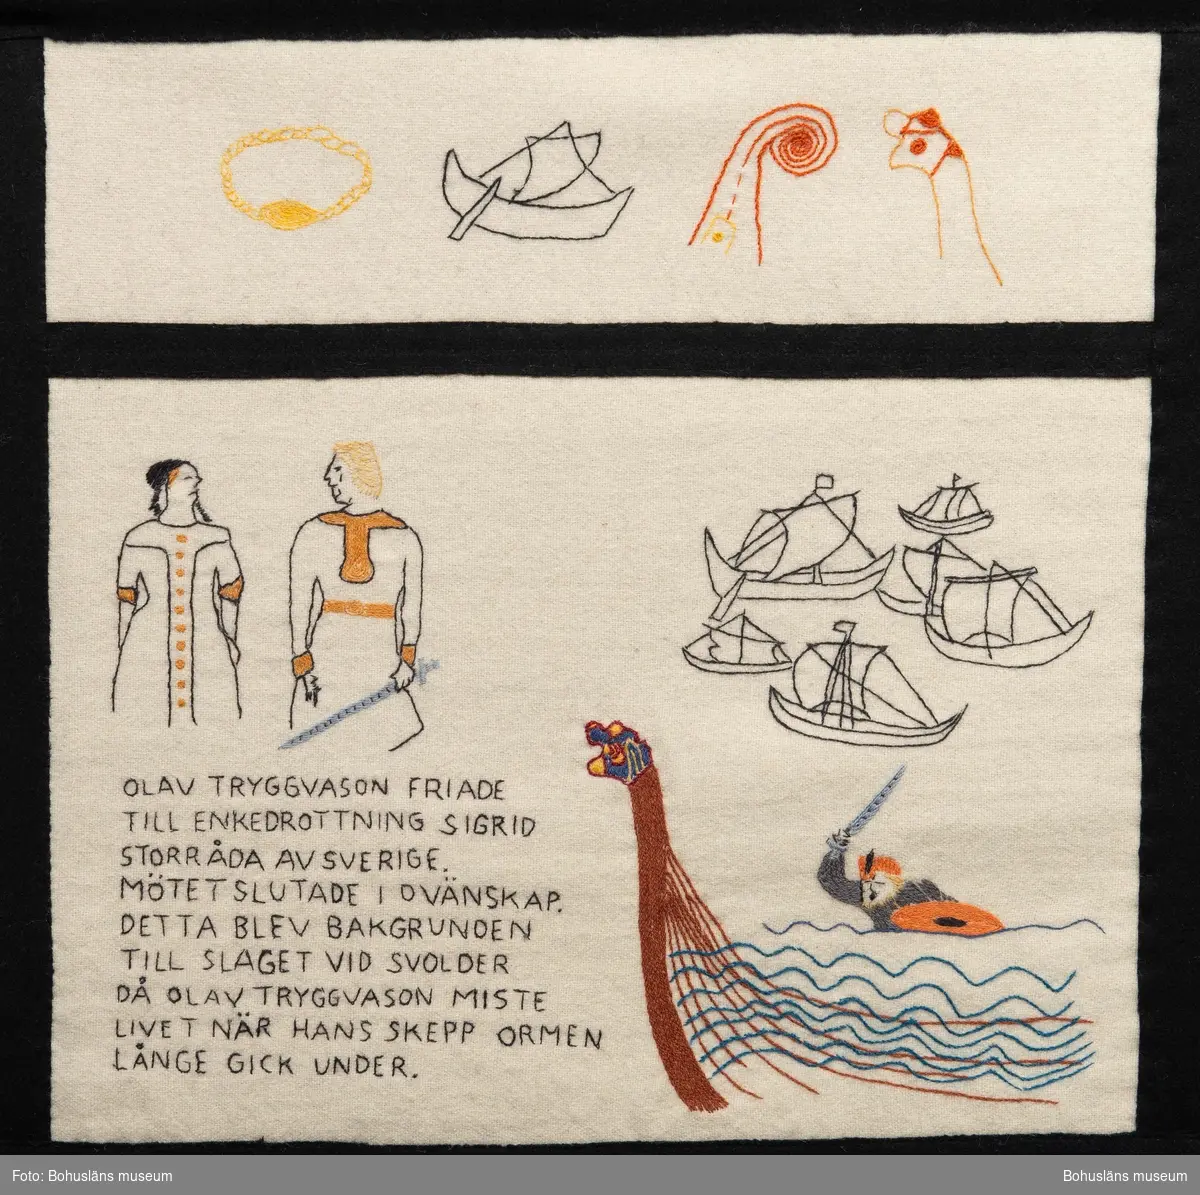 OLAV TRYGGVASON FRIADE
TILL ENKEDROTTNING SIGRID
STORRÅDA AV SVERIGE.
MÖTET SLUTADE I OVÄNSKAP.
DETTA BLEV BAKGRUNDEN
TILL SLAGET VID SVOLDER
DÅ OLAV TRYGGVASON MISTE
LIVET NÄR HANS SKEPP ORMEN
LÅNGE GICK UNDER.
Foto: Bohusläns museum
Bohusläns museum